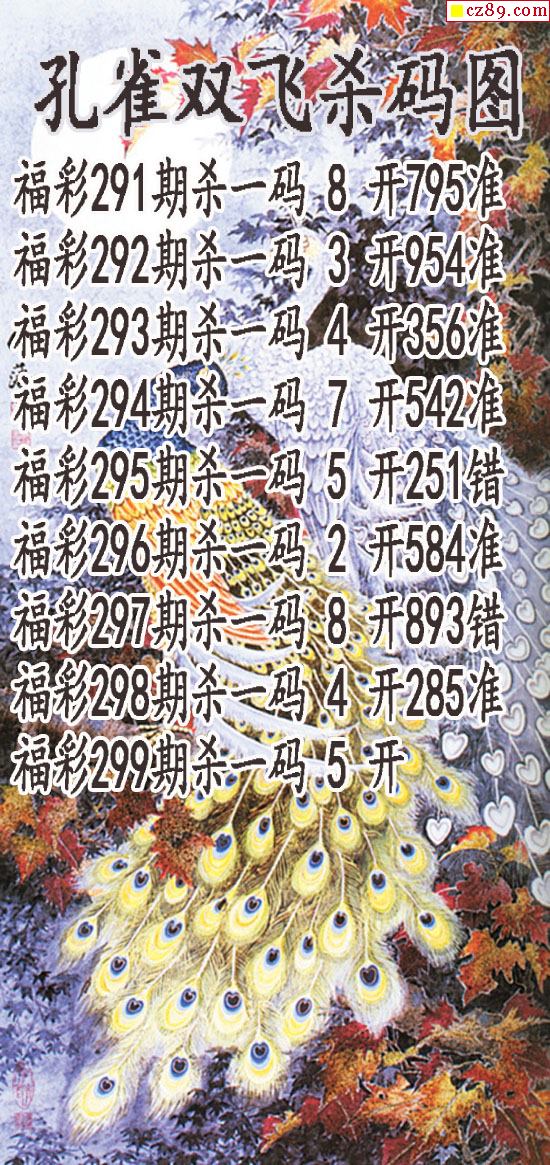 cz89.com
孔雀双飞杀码图
福彩291期杀一码 8 开795准
福彩292期杀一码 3 开954准
福彩293期杀一码 4 开356准
福彩294期杀一码 7 开542准
福彩295期杀一码 5 开251错
福彩296期杀一码 2 开584准
福彩297期杀一码 8 开893错
福彩298期杀一码 4 开285准
福彩299期杀一码 5 开